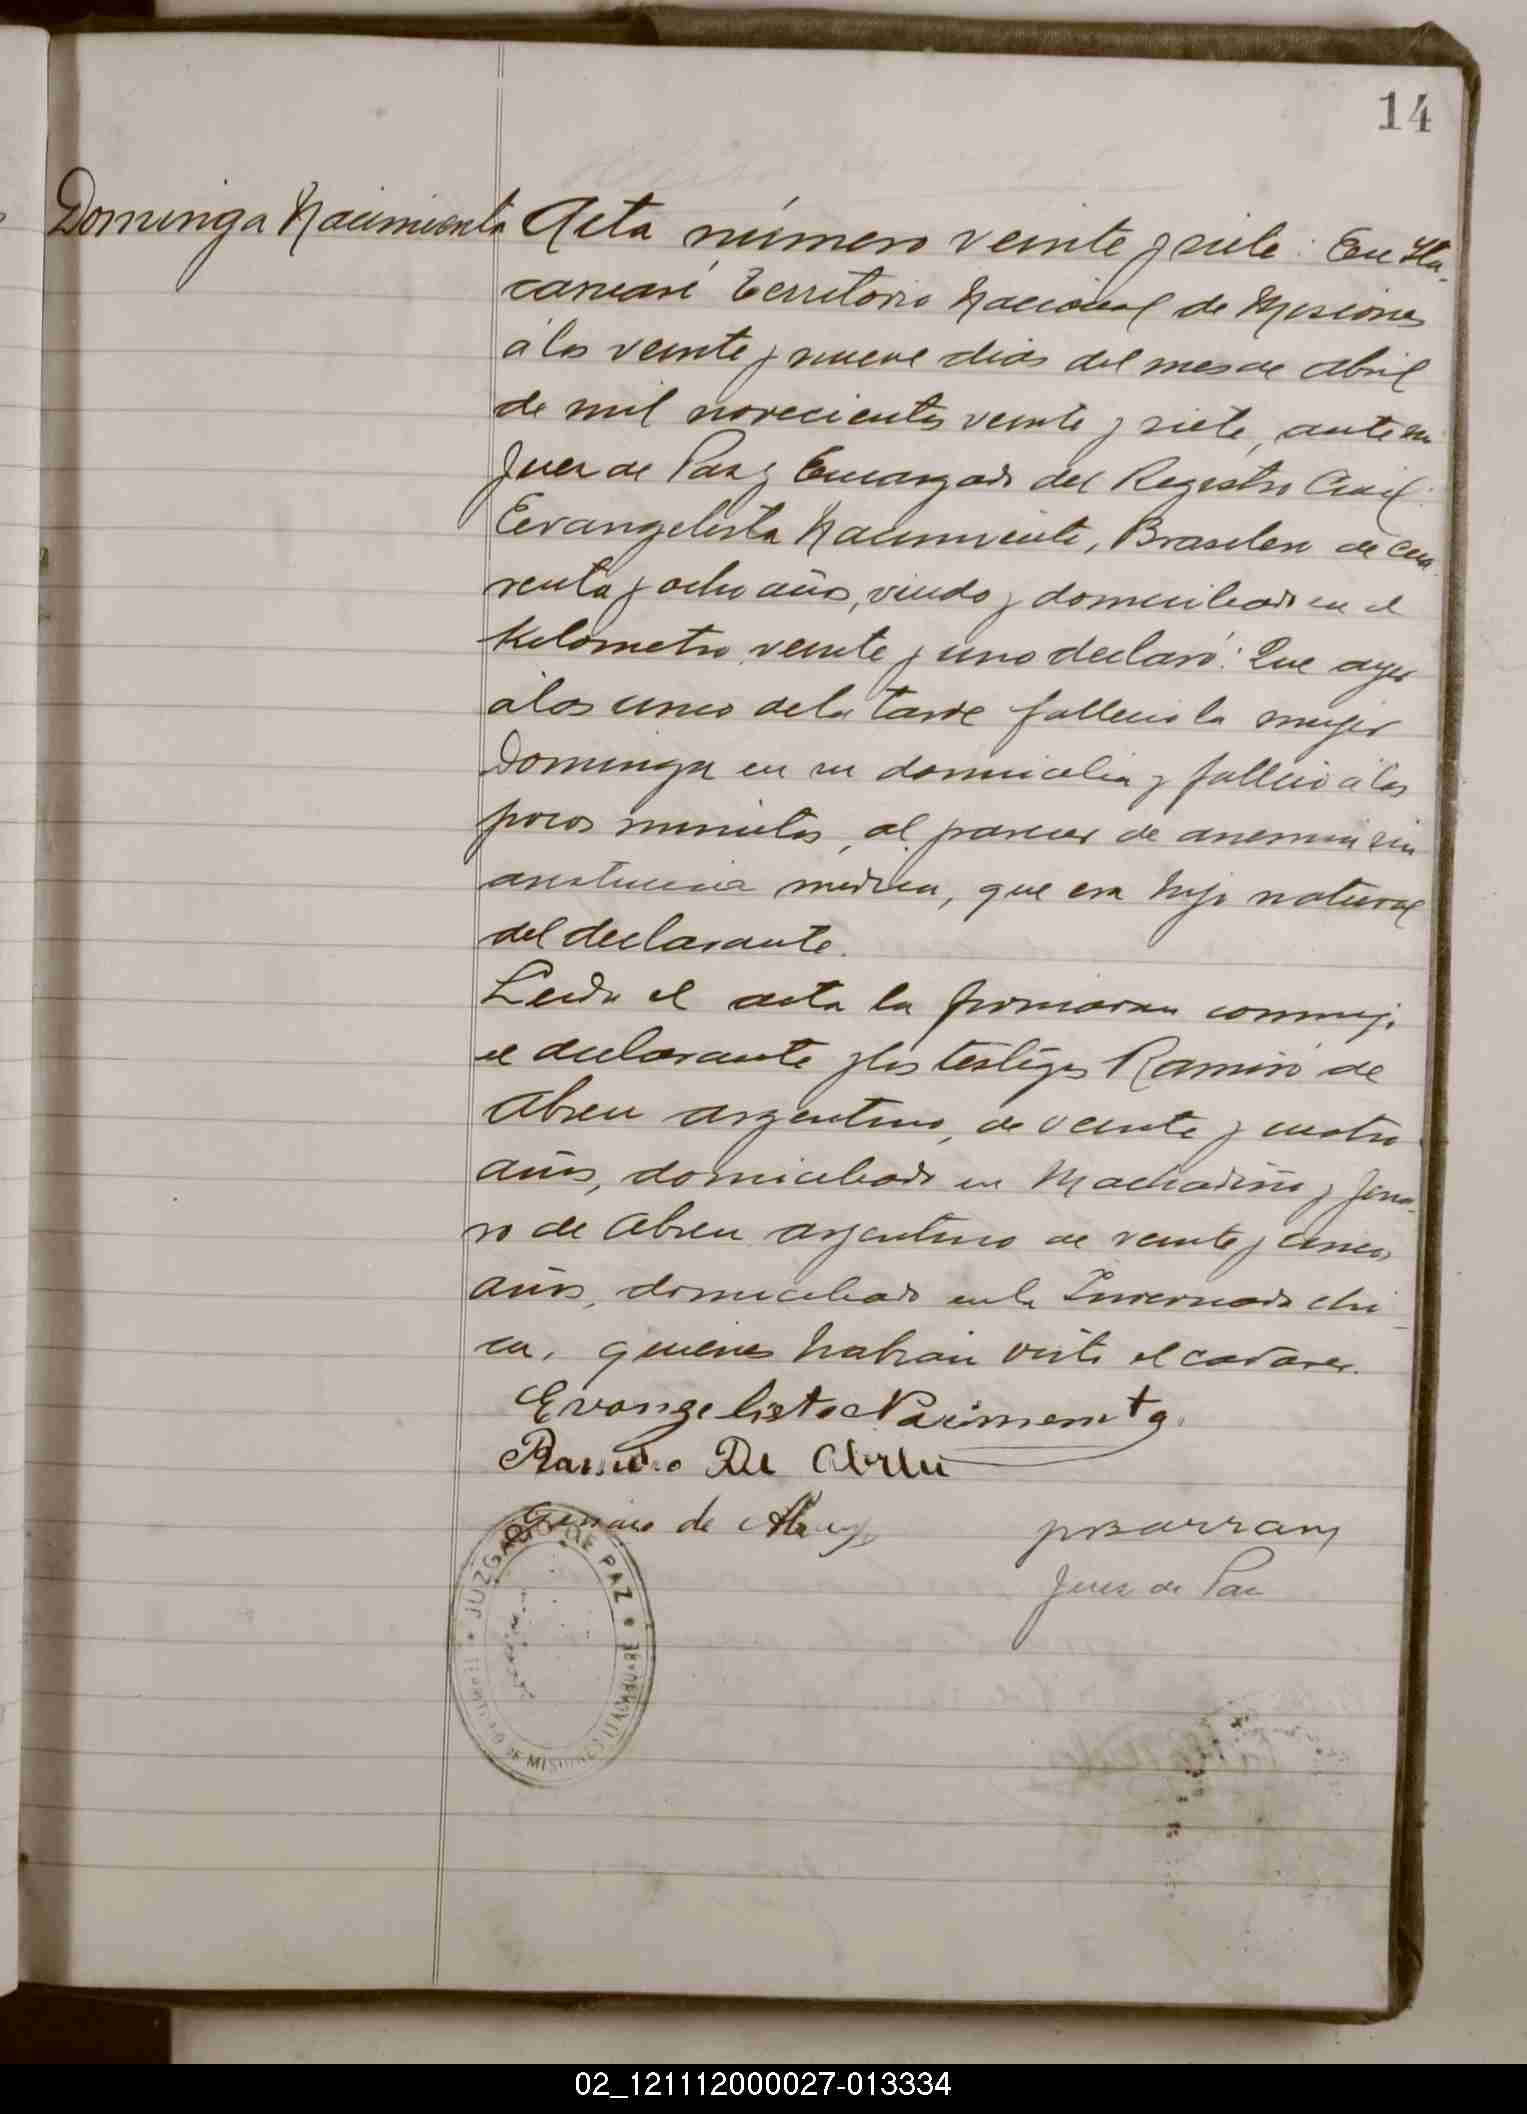 14
Dominga Nacimiento
Acta número veinte y siete: En Ita-
caruaré Territorio Nacional de Misiones
á los veinte y nueve dias del mes de Abril
de mil novecientos veinte y siete, ante mi
Juez de Paz y Encargado del Registro Civil:
Eevangelista Nacimiento, Brasilero de cua-
renta y ocho años, viudo y domiciliado en el
Kilometro veinte y uno declaró: Que ayer
á las cinco de la tarde fallecio la mujer
Dominga en su domicilio y fallecio á los
pocos minutos, al parecer de anemia sin
asistencia medica, que era hijo natural
del declarante.
Leida el acta la firmaron conmigo
el declarante y los testigos Ramiro de
Abreu argentino, de veinte y cuatro
años, domiciliado en Machadiño y Jena-
ro de Abreu argentino de veinte y cinco
años, domiciliado en la Invernada chi-
ca, quienes habian visto el cadaver.
Evangelista Nacimento
Ramiro De Abreu
Genaro de Abreu
Juez de Paz
JUZGADO DE PAZ
DE MISIONES ITACARUARE
02_121112000027-013334